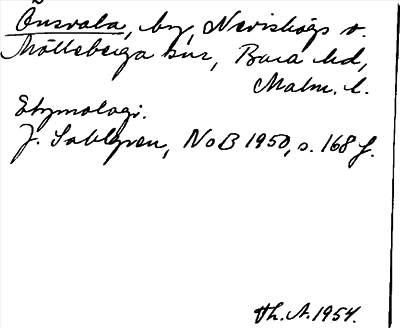 Önsvala, by, Nevishögs o.
Mölleberga snr, Bara hd,
Malm. l.
Etymologi.
J. Sahlgren, NoB 1950, s. 168 f.
Th. A. 1954.